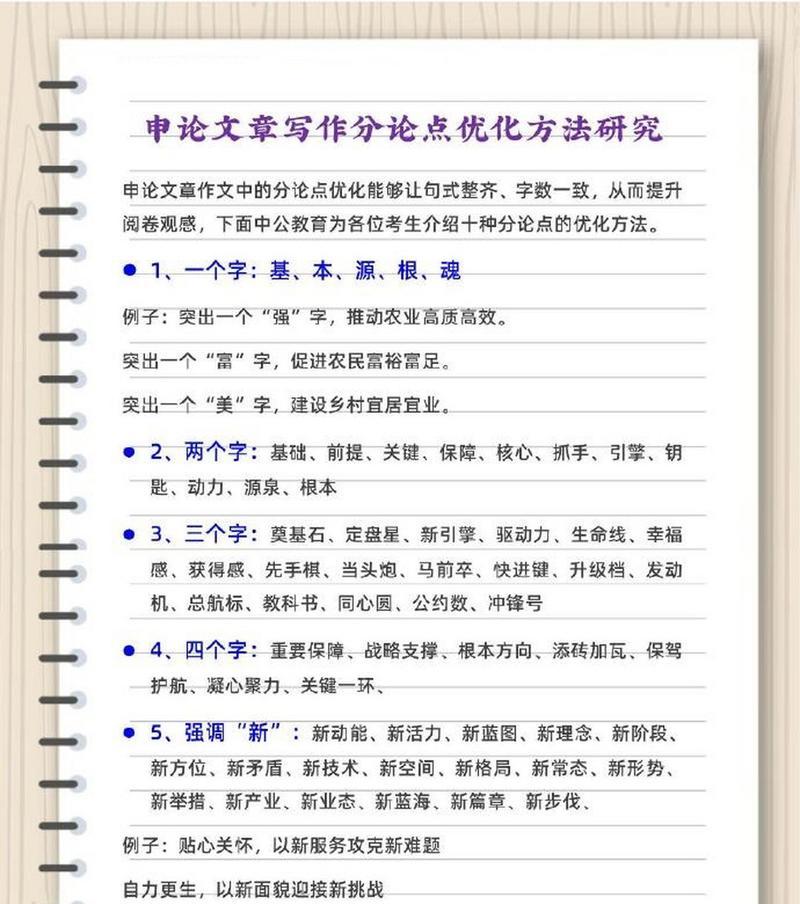 申论文章写作分论点优化方法研究
申论文章作文中的分论点优化能够让句式整齐、字数一致，从而提升
阅卷观感，下面中公教育为各位考生介绍十种分论点的优化方法。
● 1、一个字：基、本、源、根、魂
例子：突出一个“强”字，推动农业高质高效。
突出一个“富”字，促进农民富裕富足。
突出一个“美”字，建设乡村宜居宜业。
● 2、两个字：基础、前提、关键、保障、核心、抓手、引擎、钥
匙、动力、源泉、根本
● 3、三个字：奠基石、定盘星、新引擎、驱动力、生命线、幸福
感、获得感、先手棋、当头炮、马前卒、快进键、升级档、发动
机、总航标、教科书、同心圆、公约数、冲锋号
● 4、四个字：重要保障、战略支撑、根本方向、添砖加瓦、保驾
护航、凝心聚力、关键一环、
● 5、强调“新”：新动能、新活力、新蓝图、新理念、新阶段、
新方位、新矛盾、新技术、新空间、新格局、新常态、新形势、
新举措、新产业、新业态、新蓝海、新篇章、新步伐、
例子：贴心关怀，以新服务攻克新难题
自力更生，以新面貌迎接新挑战